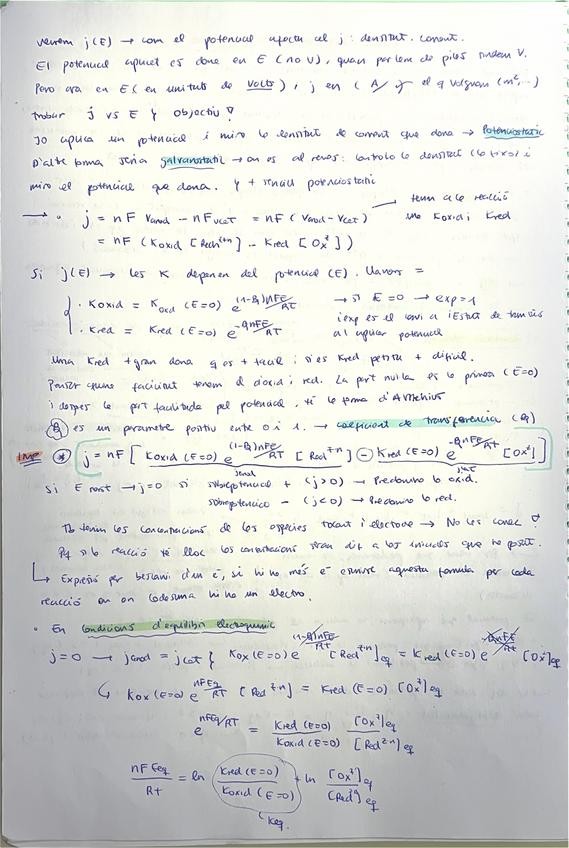 veurem j(E) → com el potencial afecta al j: densitat. corrent.
El potencial aquest es dona en E (no V), quan parlem de piles tindem V.
Pero ara en E (en unitats de Volts), j en (A/ el q volguem (m²,...)
trobar j vs E objectiu ∇
Jo aplico un potencial i miro la densitat de corrent que dona → Potenciostatic
D'altra forma seria galvanostatic → on es al reves: controlo la densitat (la fixo) i
miro el potencial que dona. + senzill potenciostatic
→ • j = nF Vanod - nF Vcat = nF (Vanod - Vcat) tenim a la reacció
= nF (Koxid [Red^z+n] - Kred [Ox^z]) una Koxid i Kred
Si j(E) → les K depenen del potencial (E). Llavors =
• Koxid = Koxid (E=0) e^((1-α)nFE/RT) → si E=0 → exp=1
• Kred = Kred (E=0) e^(-αnFE/RT) i exp es el canvi a
al aplicar potencial
Una Kred + gran dona q es + facil i si es Kred petita + dificil.
Pensar quina facilitat tenim d'oxid i red. La part nul·la es la primera (E=0)
i despres la part facilitada pel potencial, té la forma d'Arrhenius
es un parametre positiu entre 0 i 1. → coeficient de transferencia
IMP * j = nF [ Koxid (E=0) e^((1-α)nFE/RT) [Red^z-n] - Kred (E=0) e^(-αnFE/RT) [Ox^z] ]
janod jcat
si E → j=0 si sobrepotencial + (j>0) → Predomina la oxid.
sobrepotencial - (j<0) → Predomina la red.
Tb tenim les concentracions de les especies tocant l'electrode → No les conec ∇.
Pq si la reacció té lloc les concentracions seran dif a les inicials que he posat.
↳ Expresió per bescanvi d'un e⁻, si hi ha més e⁻ escriure aquesta formula per cada
reacció on hi ha un electro.
• En Condicions d'equilibri electroquimic
j=0 → janod = jcat { Kox (E=0) e^((1-α)nFE/RT) [Red^z-n]eq = Kred (E=0) e^(-αnFE/RT) [Ox^z]eq
↳ Kox (E=0) e^(nFEq/RT) [Red^z-n] = Kred (E=0) [Ox^z]eq
e^(nFEq/RT) = Kred (E=0) / Koxid (E=0) [Ox^z]eq / [Red^z-n]eq
nFEeq / Rt = ln Kred (E=0) / Koxid (E=0) + ln [Ox^z]eq / [Red^z]eq
Keq.